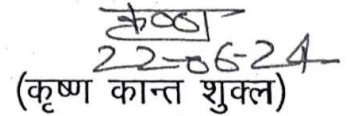 22-06-24
(कृष्ण कान्त शुक्ल)